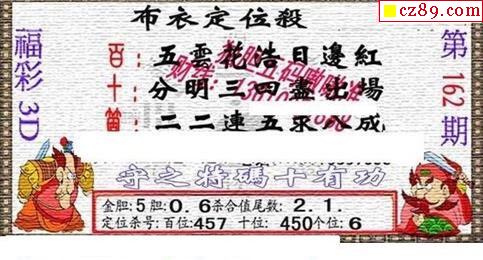 cz89.com
布衣定位殺
福彩3D
第162期
百：五雲花浩日邊紅
十：分明三四盡出場
箇：二二連五來八成
守之将碼十有功
金胆:5胆:0.6杀合值尾数:2.1.
定位杀号:百位:457 十位:450个位:6